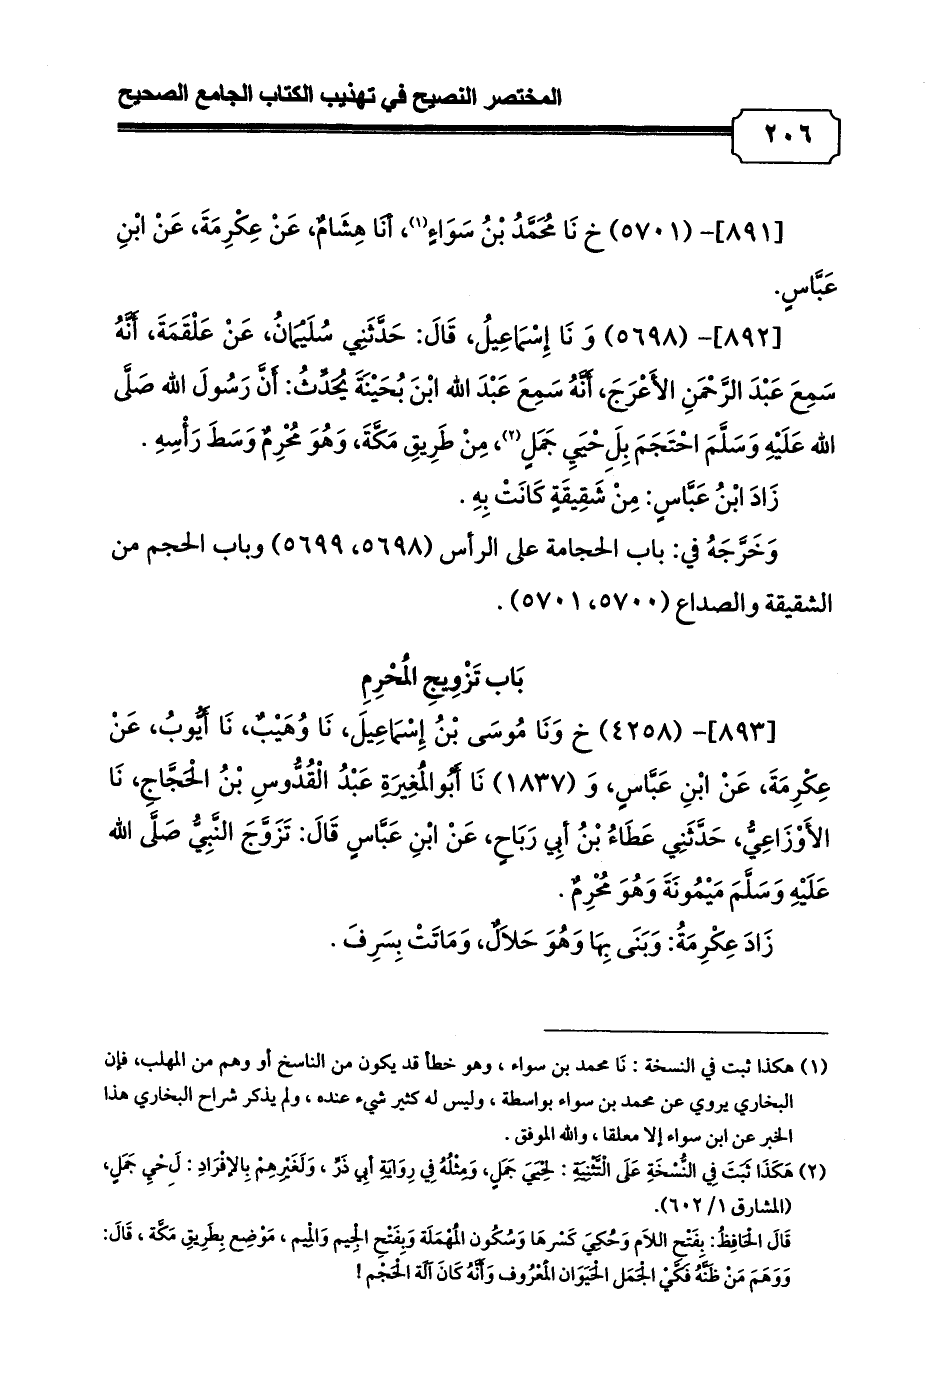 المختصر النصيح في تهذيب الكتاب الجامع الصحيح
٢٠٦
[٨٩١]- (٥٧٠١) خ نَا مُحَمَّدُ بْنُ سَوَاءٍ(١)، أَنَا هِشَامٌ، عَنْ عِكْرِمَةَ، عَنْ ابْنِ
عَبَّاسٍ.
[٨٩٢]- (٥٦٩٨) وَ نَا إِسْمَاعِيلُ، قَالَ: حَدَّثَنِي سُلَيْمَانُ، عَنْ عَلْقَمَةَ، أَنَّهُ
سَمِعَ عَبْدَ الرَّحْمَنِ الأَعْرَجَ، أَنَّهُ سَمِعَ عَبْدَ الله ابْنَ بُحَيْنَةَ يُحَدِّثُ: أَنَّ رَسُولَ الله صَلَّى
الله عَلَيْهِ وَسَلَّمَ احْتَجَمَ بِلَحْيَيِ جَمَلٍ(٢)، مِنْ طَرِيقِ مَكَّةَ، وَهُوَ مُحْرِمٌ وَسَطَ رَأْسِهِ .
زَادَ ابْنُ عَبَّاسٍ: مِنْ شَقِيقَةٍ كَانَتْ بِهِ .
وَخَرَّجَهُ في: باب الحجامة على الرأس (٥٦٩٨، ٥٦٩٩) وباب الحجم من
الشقيقة والصداع (٥٧٠٠، ٥٧٠١) .
بَاب تَزْوِيجِ الْمُحْرِمِ
[٨٩٣]- (٤٢٥٨) خ وَنَا مُوسَى بْنُ إِسْمَاعِيلَ، نَا وُهَيْبٌ، نَا أَيُّوبُ، عَنْ
عِكْرِمَةَ، عَنْ ابْنِ عَبَّاسٍ، وَ (١٨٣٧) نَا أَبُو الْمُغِيرَةِ عَبْدُ الْقُدُّوسِ بْنُ الْحَجَّاجِ، نَا
الأَوْزَاعِيُّ، حَدَّثَنِي عَطَاءُ بْنُ أبِي رَبَاحٍ، عَنْ ابْنِ عَبَّاسٍ قَالَ: تَزَوَّجَ النَّبِيُّ صَلَّى الله
عَلَيْهِ وَسَلَّمَ مَيْمُونَةَ وَهُوَ مُحْرِمٌ .
زَادَ عِكْرِمَةُ: وَبَنَى بِهَا وَهُوَ حَلاَلٌ، وَمَاتَتْ بِسَرِفَ .
(١) هكذا ثبت في النسخة : نَا محمد بن سواء ، وهو خطأ قد يكون من الناسخ أو وهم من المهلب، فإن
البخاري يروي عن محمد بن سواء بواسطة ، وليس له كثير شيء عنده ، ولم يذكر شراح البخاري هذا
الخبر عن ابن سواء إلا معلقا ، والله الموفق .
(٢) هَكَذَا ثَبَتَ فِي النُّسْخَةِ عَلَى التَّثْنِيَةِ : لِحْيَيَ جَمَلٍ، وَمِثْلُهُ فِي رِوَايَةِ أبِي ذَرٍّ ، وَلَغَيْرِهِمْ بِالإفْرَادِ : لَحْيِ جَمَلٍ،
(المشارق ١/ ٦٠٢).
قَالَ الْحَافِظُ: بِفَتْحِ اللاَّمِ وَحُكِيَ كَسْرهَا وَسُكُون الْمُهْمَلَة وَبِفَتْحِ الْجِيم وَالْمِيم ، مَوْضِع بِطَرِيقِ مَكَّة ، قَالَ:
وَوَهَمَ مَنْ ظَنَّهُ فَكَّيْ الْجَمَل الْحَيَوَان الْمَعْرُوف وَأَنَّهُ كَانَ آلَة الْحَجْم !